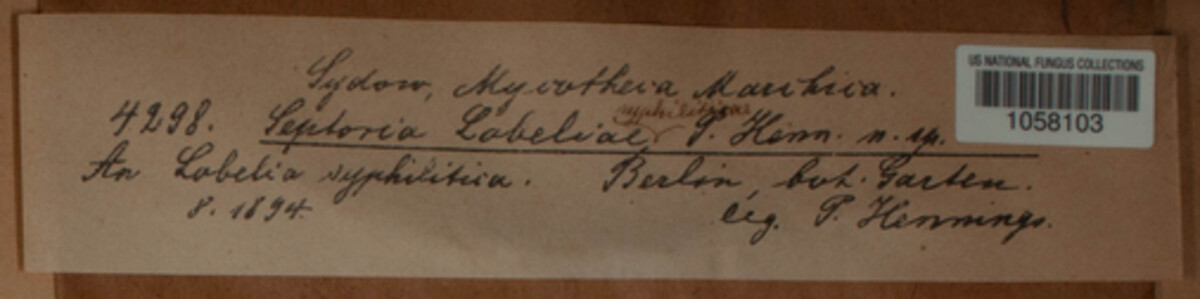 Sydow, Mycotheca Marchica.
4298. Septoria Lobeliae syphiliticae P. Henn. n. sp.
An Lobelia syphilitica. Berlin, bot. Garten.
8. 1894. leg. P. Hennings.
US NATIONAL FUNGUS COLLECTIONS
1058103